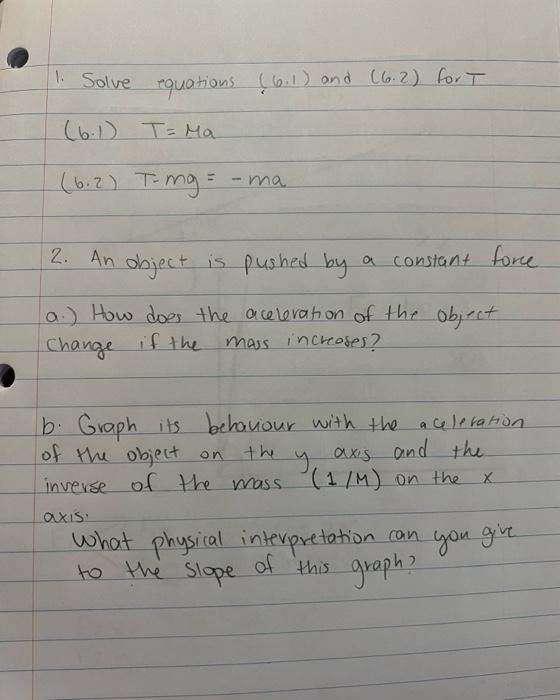 1. Solve equations (6.1) and (6.2) for T
(6.1) T = Ma
(6.2) T-mg = -ma
2. An object is pushed by a constant force
a.) How does the aceleration of the object
change if the mass increases?
b. Graph its behaviour with the aceleration
of the object on the y axis and the
inverse of the mass (1/M) on the x
axis.
What physical interpretation can you give
to the slope of this graph?